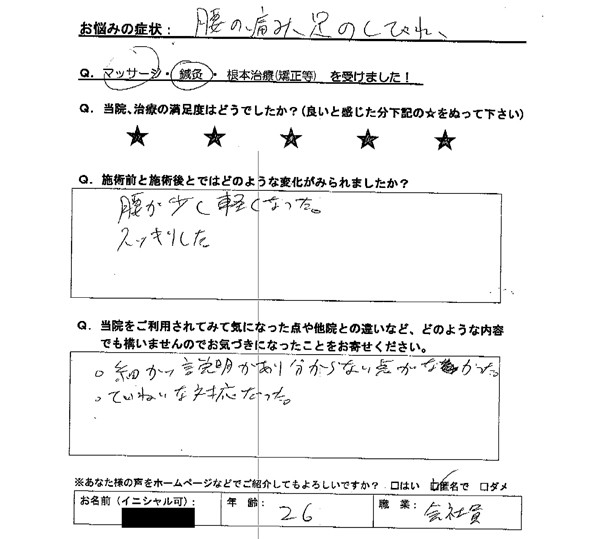 お悩みの症状： 腰の痛み、足のしびれ、
Q．マッサージ・鍼灸・根本治療(矯正等) を受けました！
Q．当院、治療の満足度はどうでしたか？(良いと感じた分下記の☆をぬって下さい)
★ ★ ★ ★ ★
Q．施術前と施術後とではどのような変化がみられましたか？
腰が少し軽くなった。
スッキリした
Q．当院をご利用されてみて気になった点や他院との違いなど、どのような内容
でも構いませんのでお気づきになったことをお寄せください。
。細かい説明があり分からない点がなかった。
。ていねいな対応だった。
※あなた様の声をホームページなどでご紹介してもよろしいですか？ □はい ☑匿名で □ダメ
お名前（イニシャル可）： 年 齢： 26 職 業： 会社員